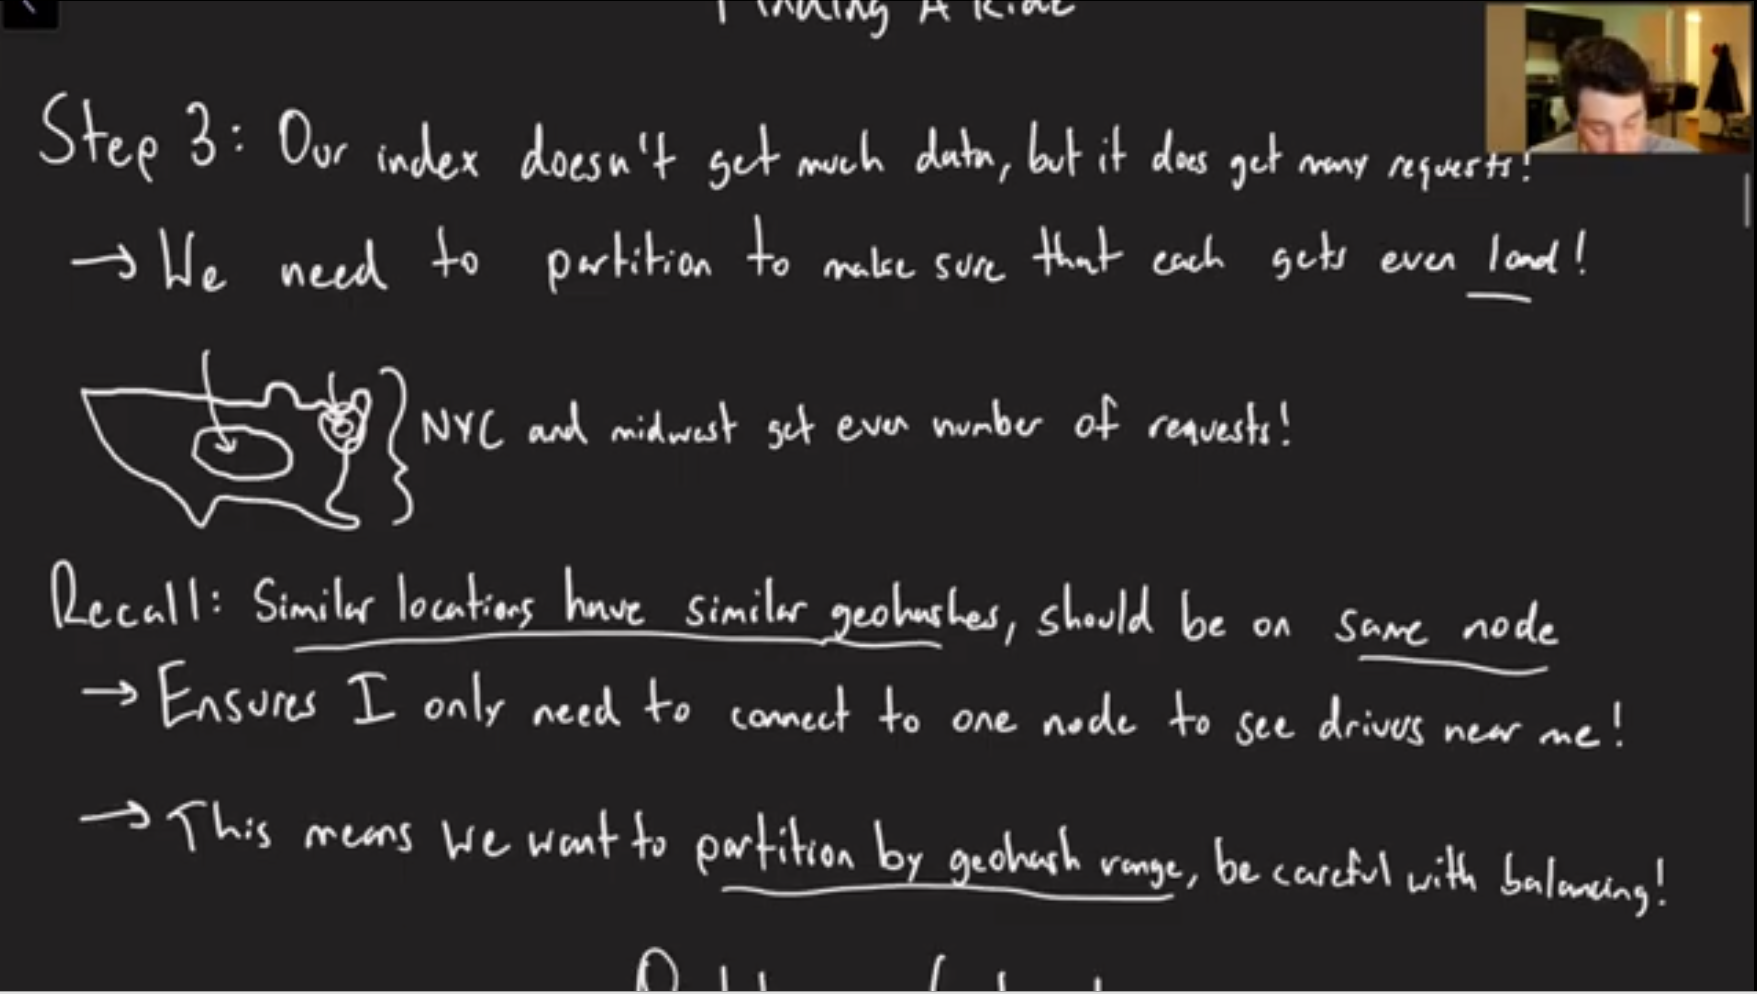 Finding A Ride
Step 3: Our index doesn't get much data, but it does get many requests!
→ We need to partition to make sure that each gets even load!
NYC and midwest get even number of requests!
Recall: Similar locations have similar geohashes, should be on same node
→ Ensures I only need to connect to one node to see drivers near me!
→ This means we want to partition by geohash range, be careful with balancing!